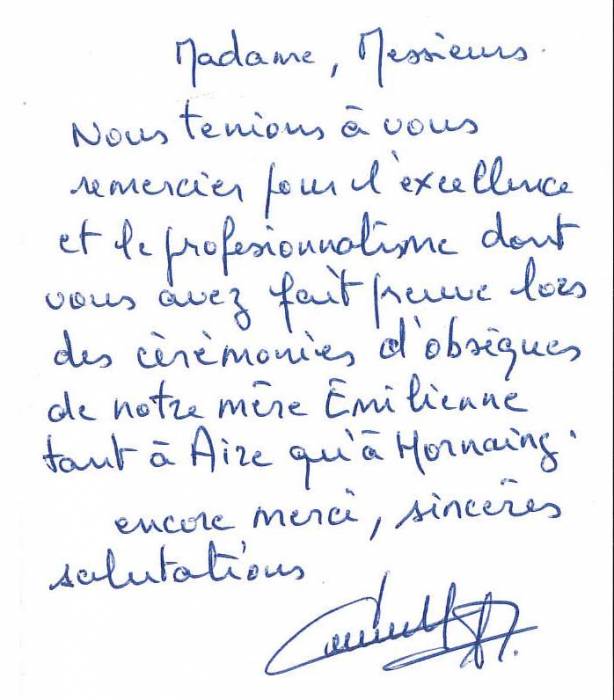 Madame, Messieurs.
Nous tenions à vous
remercier pour l'excellence
et le profesionnalisme dont
vous avez fait preuve lors
des cèrèmonies d'obsèques
de notre mère Emilienne
tant à Aire qu'à Hornaing.
encore merci, sincères
salutations